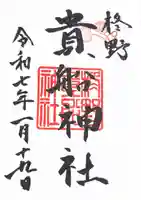 柊野
貴船神社
令和七年一月十九日